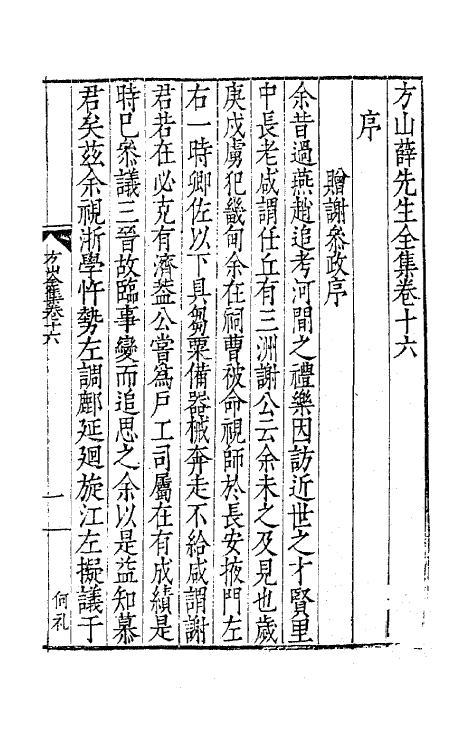 方山薛先生全集卷十六
序
贈謝叅政序
余昔過燕趙追考河間之禮樂因訪近世之才賢里
中長老咸謂任丘有三洲謝公云余未之及見也歲
庚戍虜犯畿甸余在祠曹被命視師於長安掖門左
右一時卿佐以下具芻粟備器械奔走不給咸謂謝
君若在必克有濟葢公嘗爲戸工司屬在在有成績是
時已叅議三晉故臨事變而追思之余以是益知慕
君矣茲余視浙學忤勢左調鄜延廻旋江左擬議于
方山全集卷十六
一
何礼